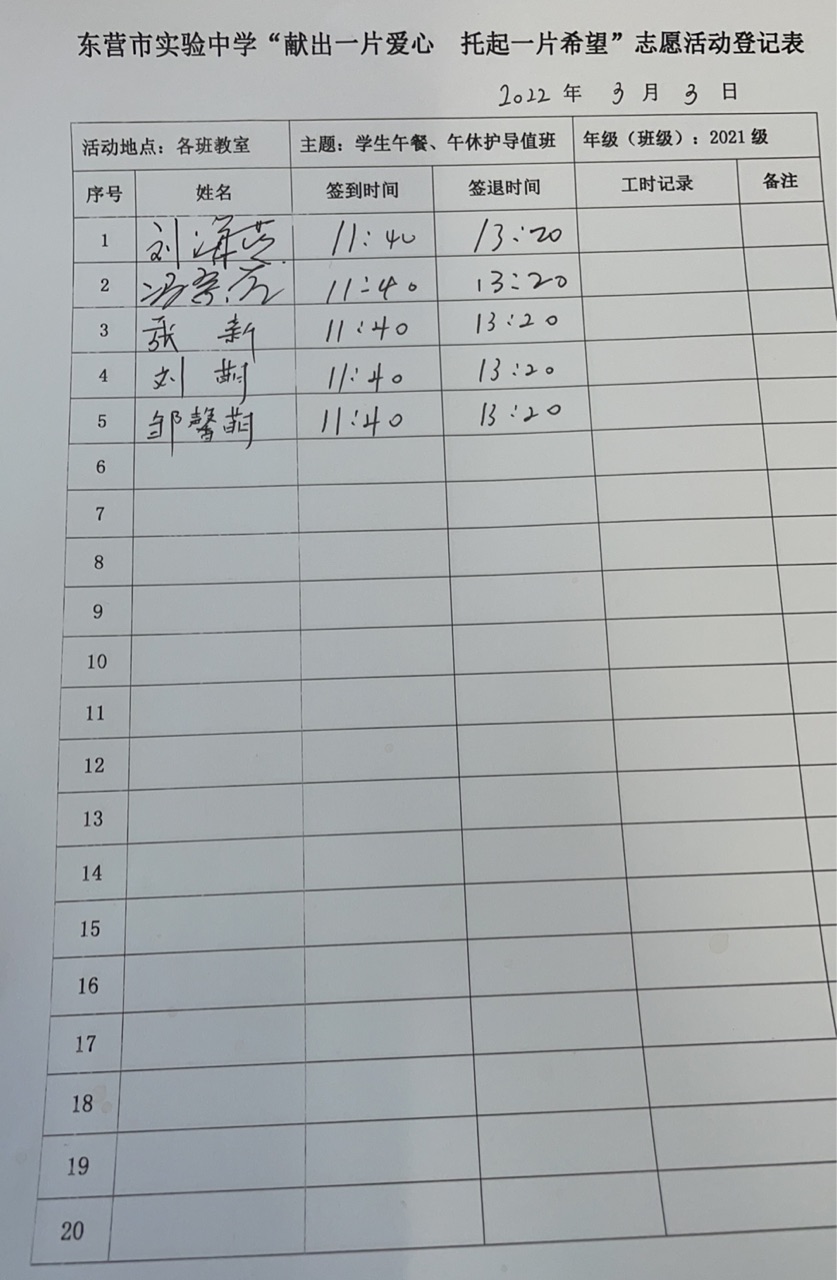 东营市实验中学“献出一片爱心 托起一片希望”志愿活动登记表
2022 年 3 月 3 日
活动地点：各班教室 主题：学生午餐、午休护导值班 年级（班级）：2021 级
序号 姓名 签到时间 签退时间 工时记录 备注
1 刘海英 11:40 13:20
2 冯 11:40 13:20
3 张新 11:40 13:20
4 刘萌 11:40 13:20
5 邹馨萌 11:40 13:20
6
7
8
9
10
11
12
13
14
15
16
17
18
19
20